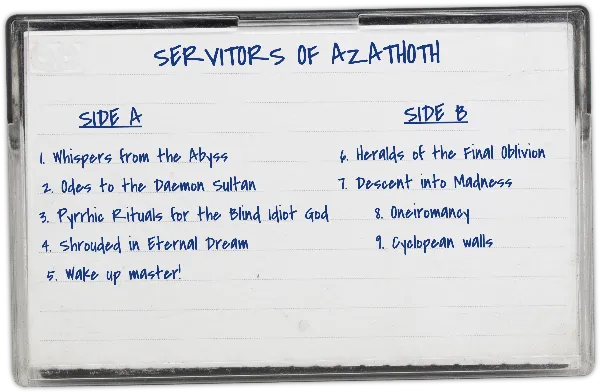 SERVITORS OF AZATHOTH
SIDE A
1. Whispers from the Abyss
2. Odes to the Daemon Sultan
3. Pyrrhic Rituals for the Blind Idiot God
4. Shrouded in Eternal Dream
5. Wake up master!
SIDE B
6. Heralds of the Final Oblivion
7. Descent into Madness
8. Oneiromancy
9. Cyclopean walls